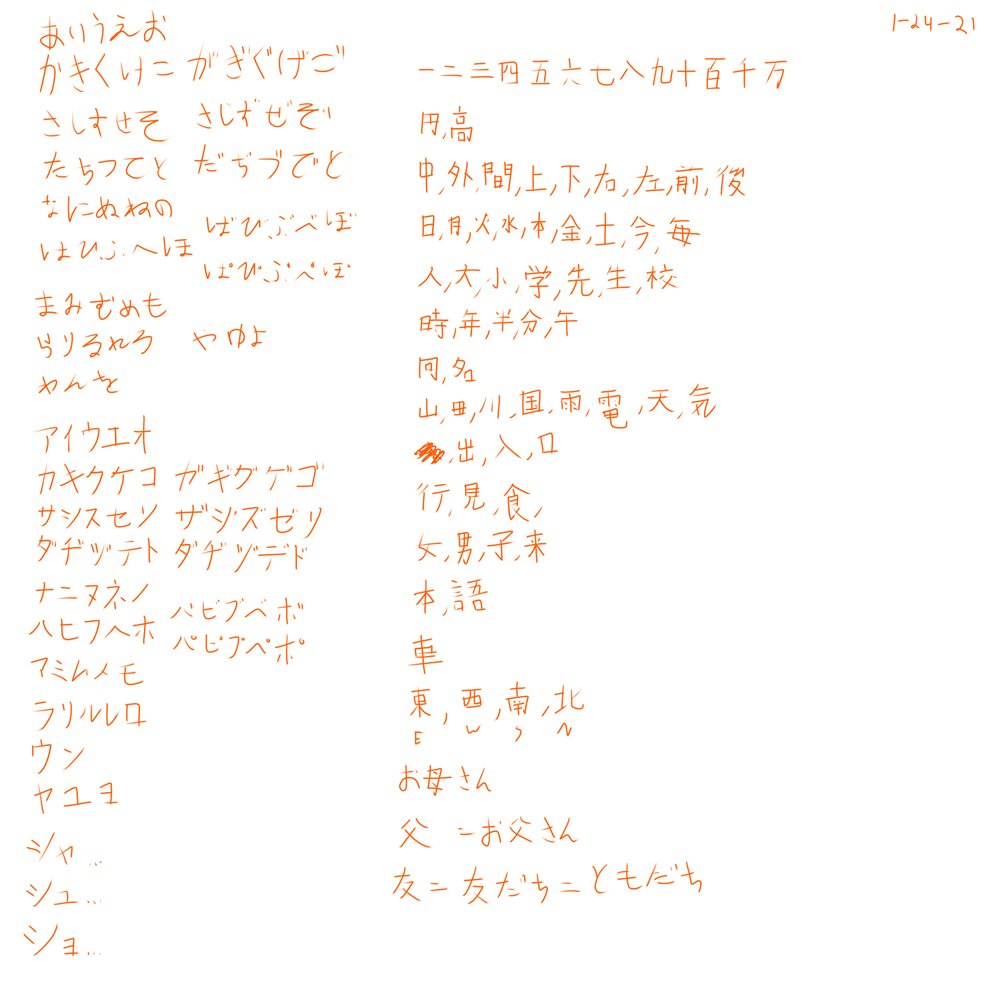 1-24-21
あいうえお
かきくけこ がぎぐげご
さしすせそ さじずぜぞ
たちつてと だぢづでど
なにぬねの
はひふへほ ばびぶべぼ
ぱぴぷぺぽ
まみむめも
らりるれろ やゆよ
わんを
アイウエオ
カキクケコ ガギグゲゴ
サシスセソ ザジズゼゾ
ダヂヅテト ダヂヅデド
ナニヌネノ
ハヒフヘホ バビブベボ
パピプペポ
マミムメモ
ラリルレロ
ウン
ヤユヨ
シャ...
シュ...
ショ...
一二三四五六七八九十百千万
円,高
中,外,間,上,下,右,左,前,後
日,月,火,水,木,金,土,今,毎
人,大,小,学,先,生,校
時,年,半,分,午
何,名
山,田,川,国,雨,電,天,気
,出,入,口
行,見,食,
女,男,子,来
本,語
車
東,西,南,北
E W S N
お母さん
父=お父さん
友=友だち=ともだち